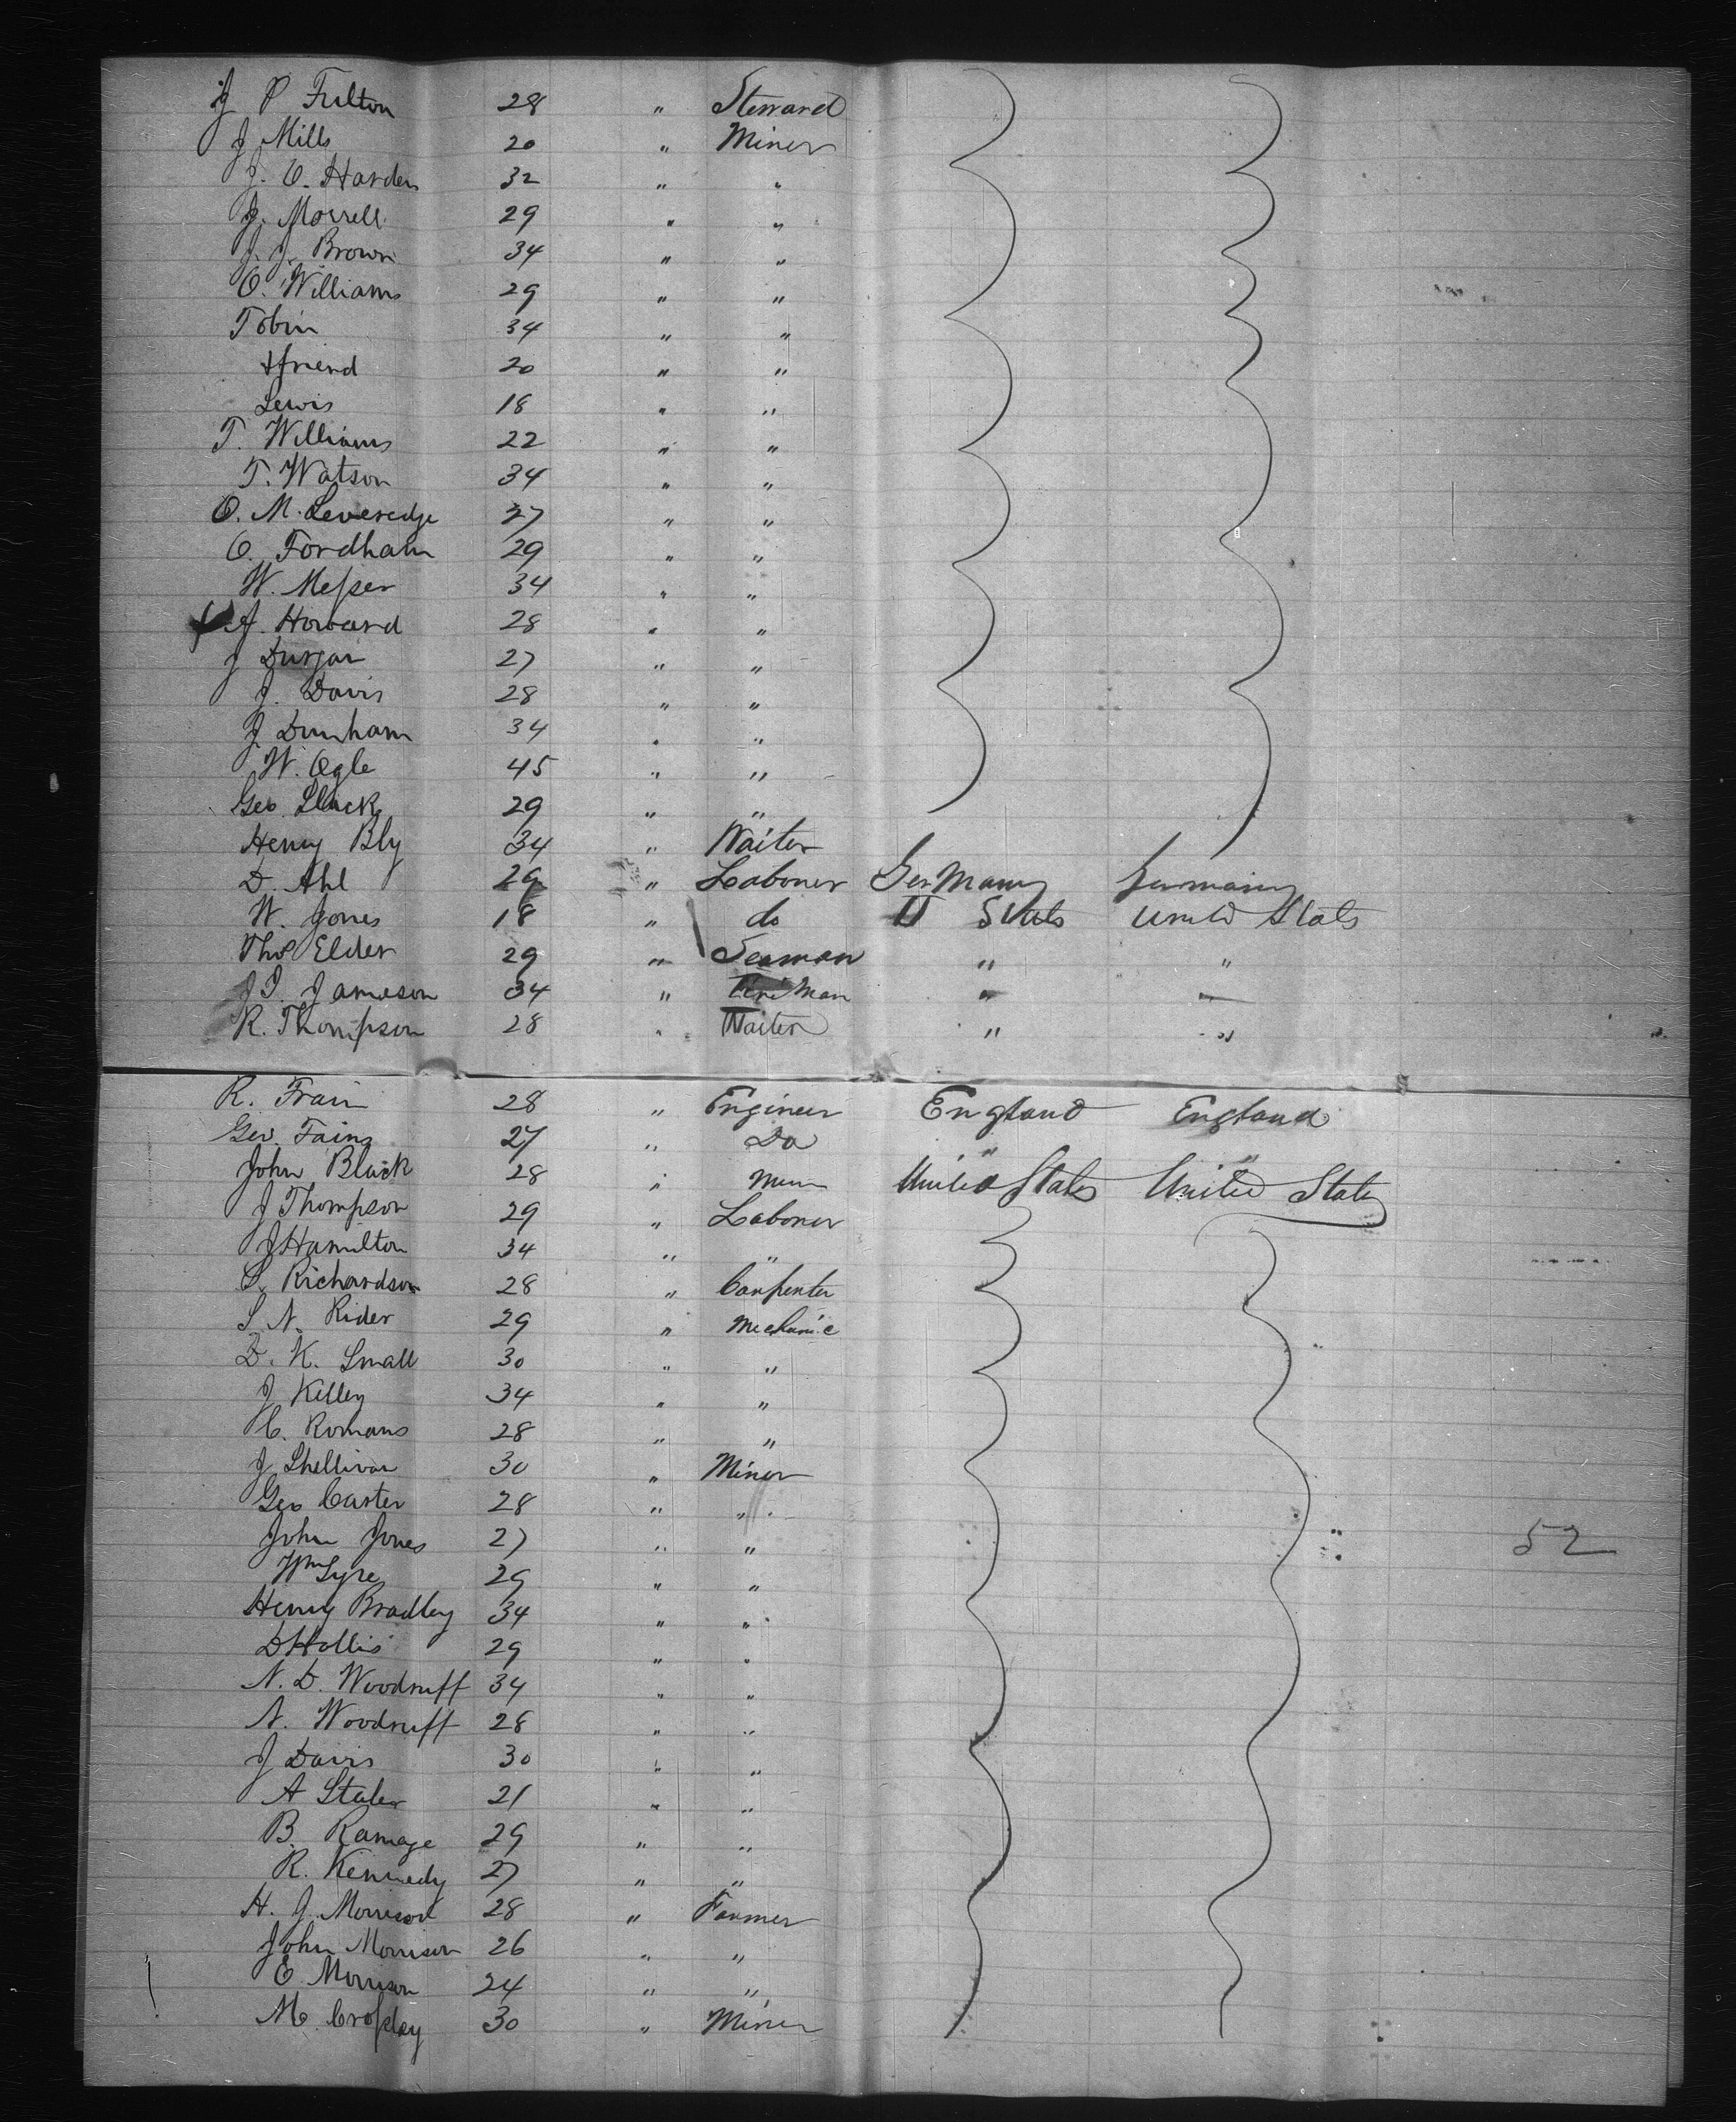 J P Fulton 28 " Steward
J Mills 20 " Miner
J. C. Harden 32 " "
J. Morrell 29 " "
J. J. Brown 34 " "
C. Williams 29 " "
Tobin 34 " "
& friend 20 " "
Lewis 18 " "
T. Williams 22 " "
T. Watson 34 " "
O. M. Leveredge 27 " "
C. Fordham 29 " "
W. Messer 34 " "
A. Howard 28 " "
J 27 " "
J. Davis 28 " "
J. Dunham 34 " "
W. Ogle 45 " "
Geo. 29 " "
Henry Bly 34 " Waiter
D. Ahl 29 " Laborer Germany Germany
W. Jones 18 " do U States United States
Thos Elder 29 " Seaman " "
J. Jameson 34 " " "
R. Thompson 28 " Waiter " "
R. Frain 28 " Engineer England England
Geo. 27 " Do " "
John Black 28 " United States United States
J Thompson 29 " Laborer
J Hamilton 34 " "
S. Richardson 28 " Carpenter
S N. Rider 29 " Mechanic
D. K. Small 30 " "
J Kelley 34 " "
C. Romans 28 " "
J Shellivan 30 " Miner
Geo Carter 28 " "
John Jones 27 " "
Wm 29 " "
Henry Bradley 34 " "
D Hollis 29 " "
N. D. Woodruff 34 " "
N. Woodruff 28 " "
J Davis 30 " "
A Staler 21 " "
B. Ramage 29 " "
R. Kennedy 27 " "
H. J. Morrison 28 " Farmer
John Morrison 26 " "
E Morrison 24 " "
M. Crossley 30 " Miner
52